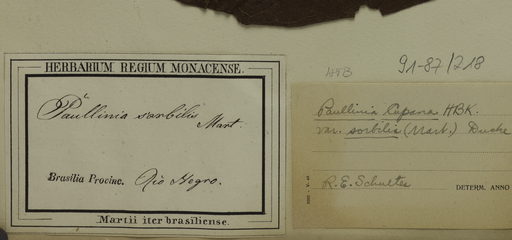 HTB
91-87/218
HERBARIUM REGIUM MONACENSE.
Paullinia sorbilis
Mart.
Brasilia Provinc. Rio Negro.
Martii iter brasiliense.
Paullinia Cupana HBK.
var. sorbilis (Mart.) Ducke
R. E. Schultes
DETERM. ANNO